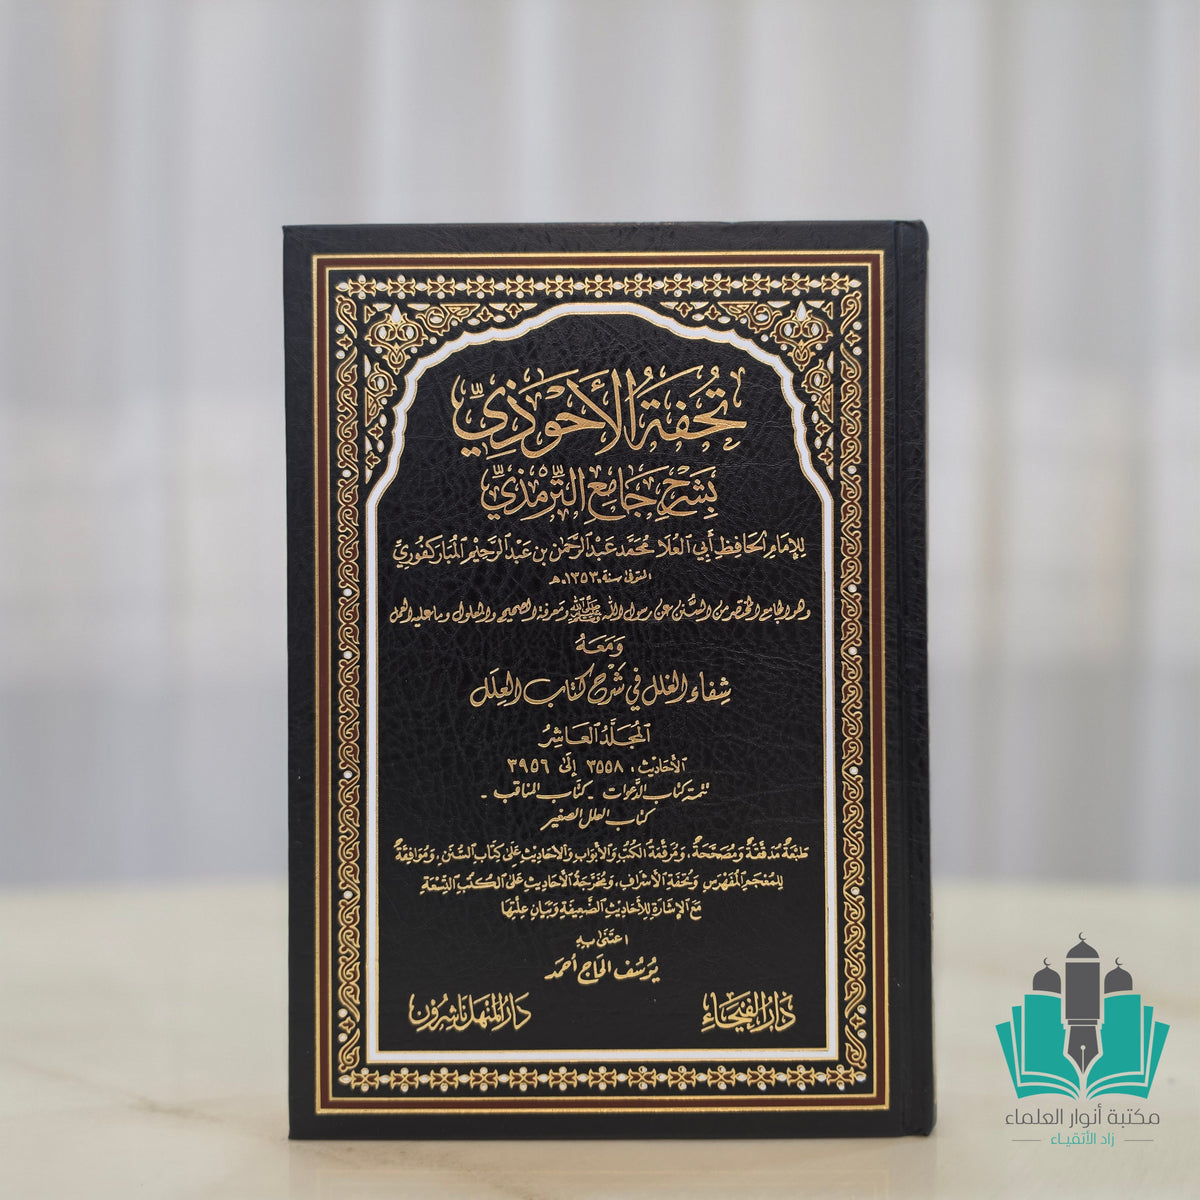 تُحْفَةُ الأَحْوَذِيِّ
بِشَرْحِ جَامِعِ التِّرْمِذِيِّ
لِلإِمَامِ الحَافِظِ أَبِي العُلَا مُحَمَّد عَبْدالرَّحمٰن بن عَبْدالرَّحِيم المُبَاركفُوريِّ
المتوفى سنة ١٣٥٣.هـ
وهو الجامع المختصر من السُّنن عن رسول الله ﷺ ومَعرفة الصحيح والمعلول وما عليه العمل
وَمَعَهُ
شِفَاء الغلل في شَرْح كتاب العِلَل
المُجَلَّدُ العَاشِرُ
الأحَاديث: ٣٥٥٨ إلَى ٣٩٥٦
تتمة كتاب الدَّعوات - كتَاب المناقب -
كتاب العلل الصغير
طَبْعَةٌ مُدَقَّقَةٌ وَمُصَحَّحَةٌ، وَمُرَقَّمَةُ الكُتُبِ وَالأَبْوَابِ وَالأَحَادِيثِ عَلَى كِتَابِ السُّنَنِ، وَمُوَافِقَةٌ
لِلمُعْجَمِ المُفَهْرَسِ وَتُحْفَةِ الأَشْرَافِ، وَمُخَرَّجَةُ الأَحَادِيثِ عَلَى الكُتُبِ التِّسْعَةِ
مَعَ الإِشَارَةِ لِلأَحَادِيثِ الضَّعِيفَةِ وَبَيَانِ عِلَّتِهَا
اعتَنَى بِهِ
يُوسُف الحَاج أحمَد
دَارُ الفَيْحَاء
دَارُ المَنْهَل نَاشِرُون
مكتبة أنوار العلماء
زاد الأتقياء